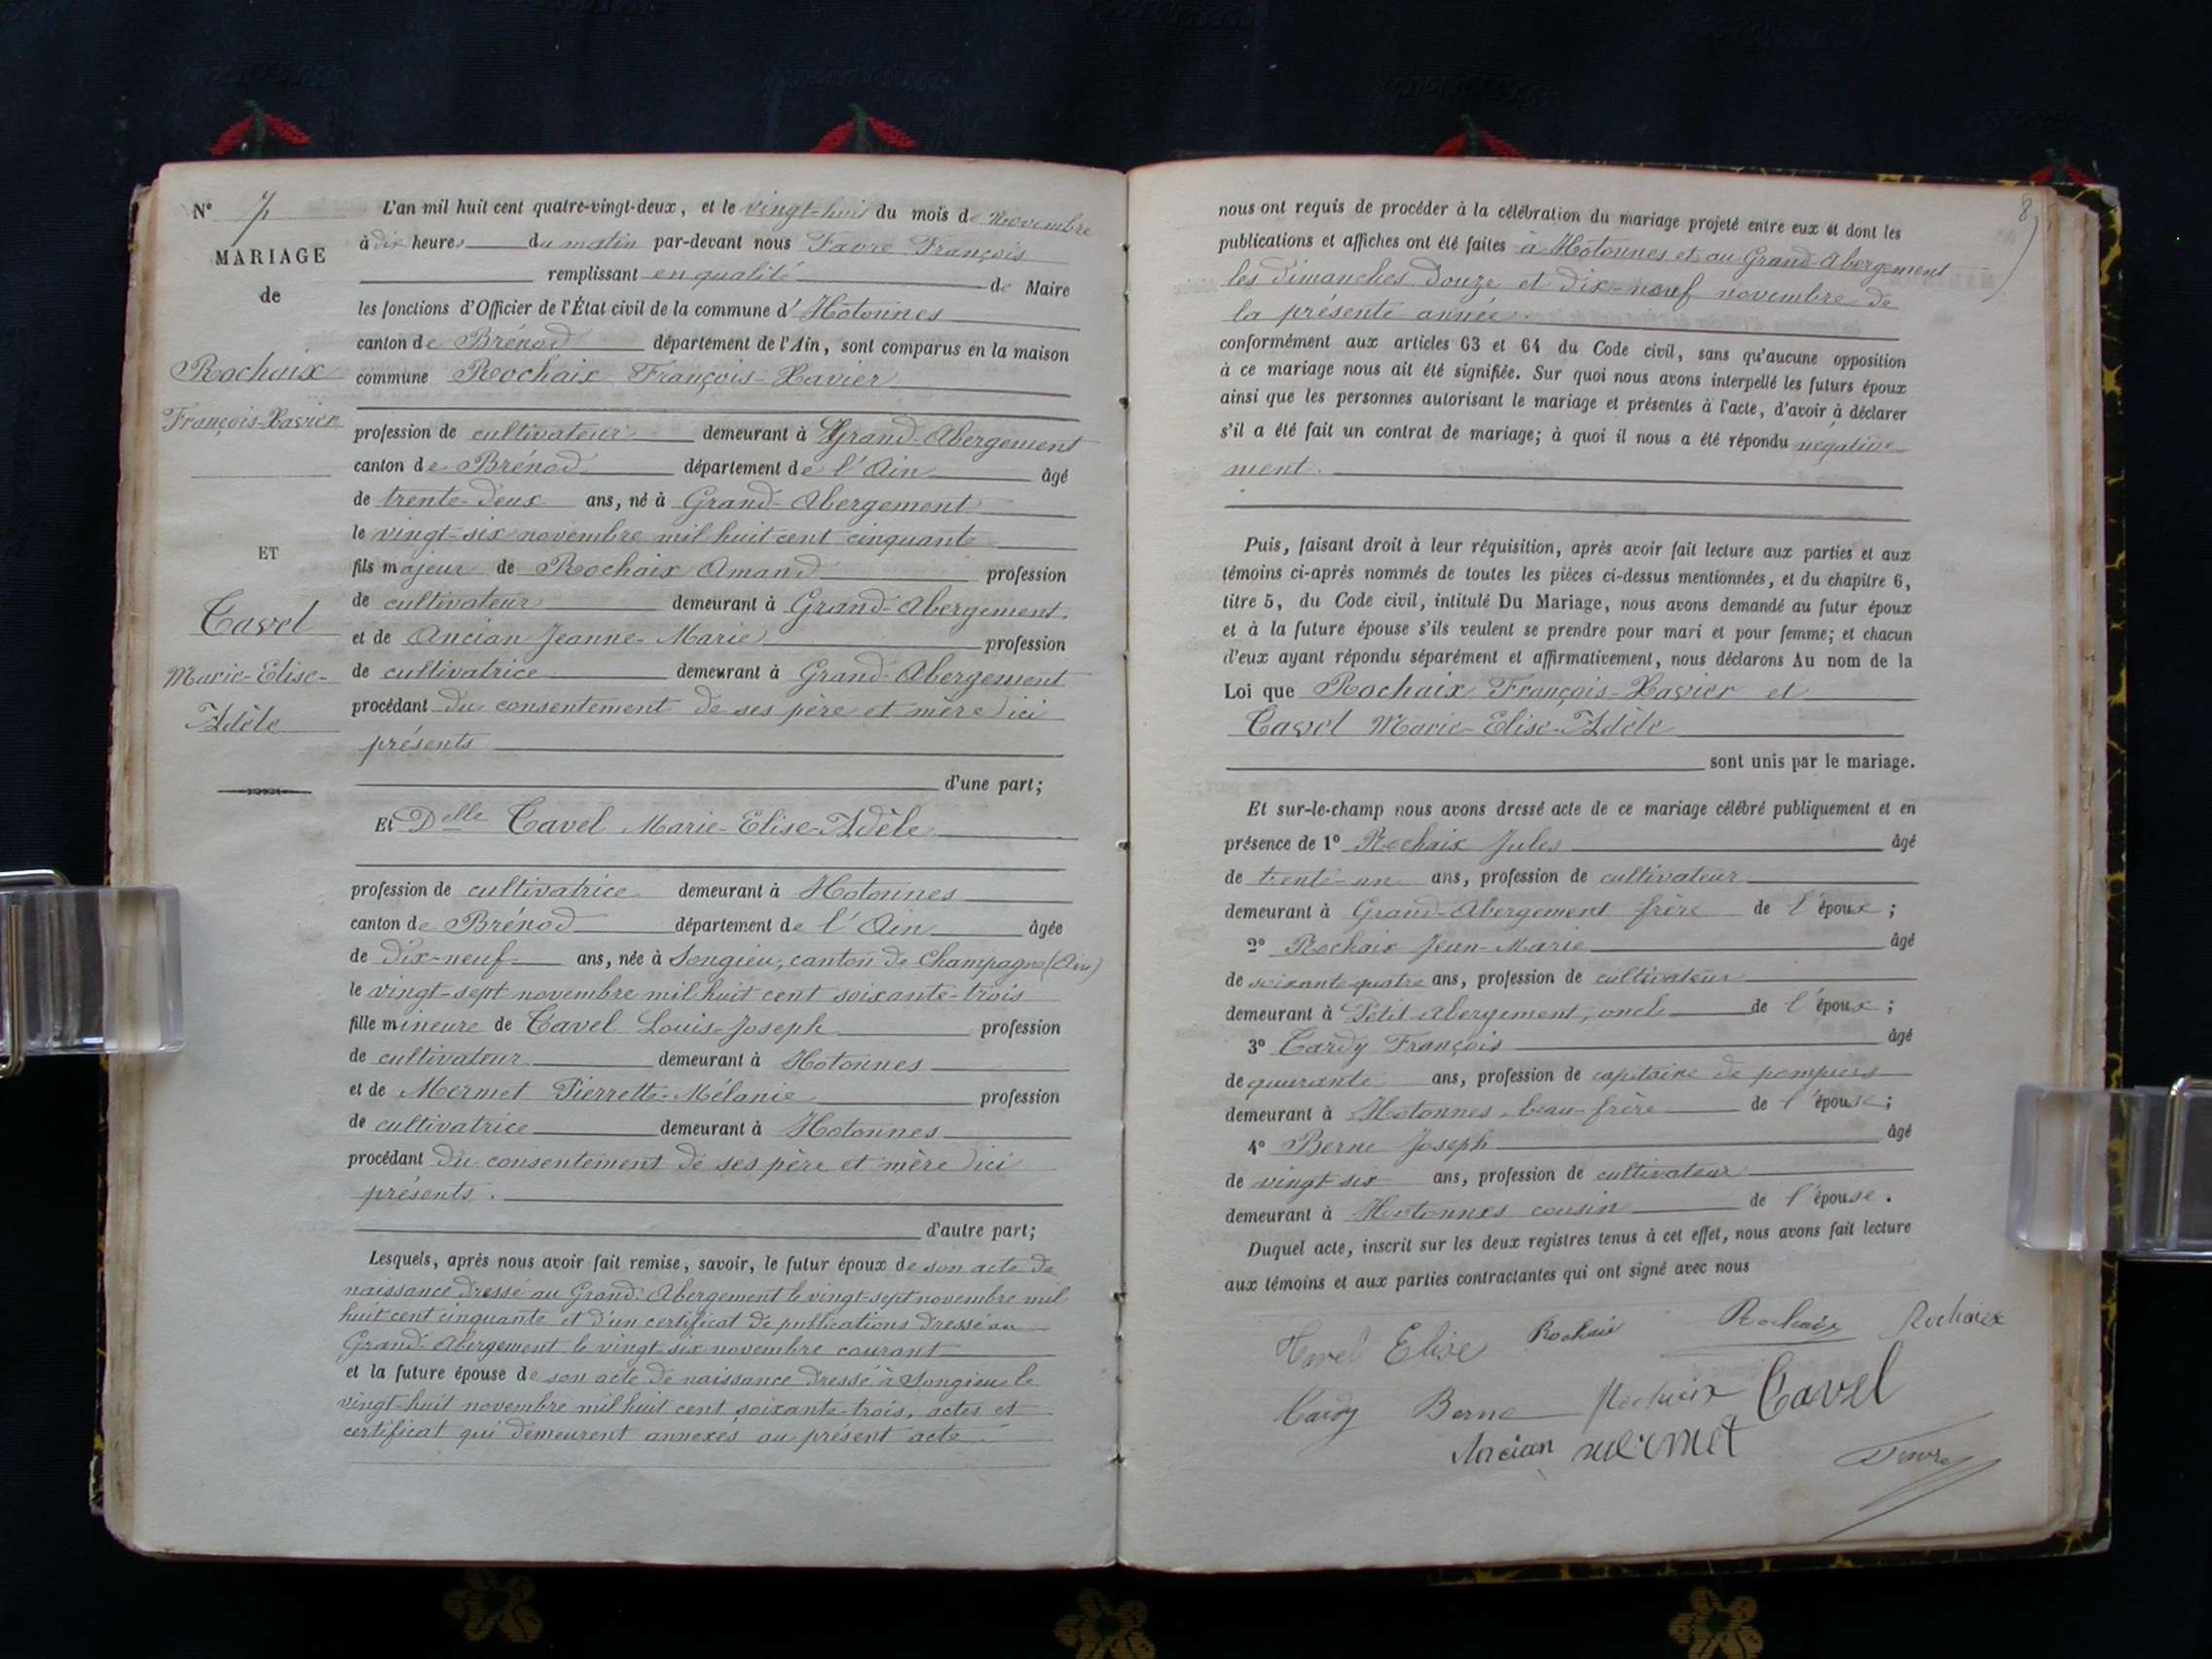 N° 7
MARIAGE
de
Rochaix
François-Xavier
ET
Cavel
Marie-Elise-
Adèle
L'an mil huit cent quatre-vingt-deux, et le vingt-huit du mois de Novembre
à dix heures du matin par-devant nous Favre François
remplissant en qualité de Maire
les fonctions d'Officier de l'État civil de la commune d'Hotonnes
canton de Brénod département de l'Ain, sont comparus en la maison
commune Rochaix François-Xavier
profession de cultivateur demeurant à Grand-Abergement
canton de Brénod département de l'Ain âgé
de trente-deux ans, né à Grand-Abergement
le vingt-six novembre mil huit cent cinquante
fils majeur de Rochaix Amand profession
de cultivateur demeurant à Grand-Abergement.
et de Ancian Jeanne-Marie profession
de cultivatrice demeurant à Grand-Abergement
procédant du consentement de ses père et mère ici
présents
d'une part;
Et Delle Cavel Marie-Elise-Adèle
profession de cultivatrice demeurant à Hotonnes
canton de Brénod département de l'Ain âgée
de dix-neuf ans, née à Songieu, canton de Champagne (Ain)
le vingt-sept novembre mil huit cent soixante-trois
fille mineure de Cavel Louis-Joseph profession
de cultivateur demeurant à Hotonnes
et de Mermet Pierrette-Mélanie profession
de cultivatrice demeurant à Hotonnes
procédant du consentement de ses père et mère ici
présents.
d'autre part;
Lesquels, après nous avoir fait remise, savoir, le futur époux de son acte de
naissance dressé au Grand-Abergement le vingt-sept novembre mil
huit cent cinquante et d'un certificat de publications dressé au
Grand-Abergement le vingt-six novembre courant
et la future épouse de son acte de naissance dressé à Songieu le
vingt-huit novembre mil huit cent soixante-trois, actes et
certificat qui demeurent annexés au présent acte
8
nous ont requis de procéder à la célébration du mariage projeté entre eux et dont les
publications et affiches ont été faites à Hotonnes et au Grand-Abergement
les dimanches douze et dix-neuf novembre de
la présente année.
conformément aux articles 63 et 64 du Code civil, sans qu'aucune opposition
à ce mariage nous ait été signifiée. Sur quoi nous avons interpellé les futurs époux
ainsi que les personnes autorisant le mariage et présentes à l'acte, d'avoir à déclarer
s'il a été fait un contrat de mariage; à quoi il nous a été répondu négative
ment.
Puis, faisant droit à leur réquisition, après avoir fait lecture aux parties et aux
témoins ci-après nommés de toutes les pièces ci-dessus mentionnées, et du chapitre 6,
titre 5, du Code civil, intitulé Du Mariage, nous avons demandé au futur époux
et à la future épouse s'ils veulent se prendre pour mari et pour femme; et chacun
d'eux ayant répondu séparément et affirmativement, nous déclarons Au nom de la
Loi que Rochaix François-Xavier et
Cavel Marie-Elise-Adèle
sont unis par le mariage.
Et sur-le-champ nous avons dressé acte de ce mariage célébré publiquement et en
présence de 1° Rochaix Jules âgé
de trente-un ans, profession de cultivateur
demeurant à Grand-Abergement frère de l'époux;
2° Rochaix Jean-Marie âgé
de soixante quatre ans, profession de cultivateur
demeurant à Petit Abergement, oncle de l'époux;
3° Cardy François âgé
de quarante ans, profession de capitaine de pompiers
demeurant à Hotonnes, beau-frère de l'épouse;
4° Berne Joseph âgé
de vingt six ans, profession de cultivateur
demeurant à Hotonnes cousin de l'épouse.
Duquel acte, inscrit sur les deux registres tenus à cet effet, nous avons fait lecture
aux témoins et aux parties contractantes qui ont signé avec nous
Cavel Elise Rochaix Rochaix Rochaix
Cardy Berne Rochaix Cavel
Ancian Mermet Favre